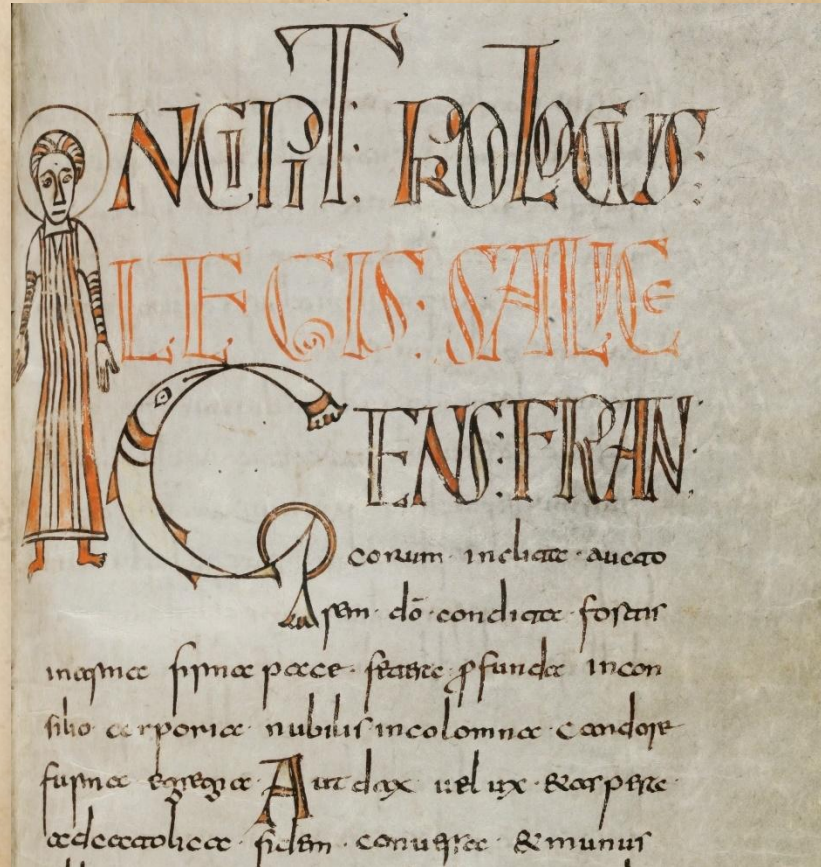 INCIPIT: PROLOGUS:
LEGIS: SALICE
GENS: FRAN
corum · inclita · aucto
rem · dō · condita · fortis
inarma firma pace · fetere ꝓfunda incon
silio · corporia · nubilis incolomna candore
furma egregia · Audax uelux · &aspera
adcatolica · fidem · conuersa · &munus